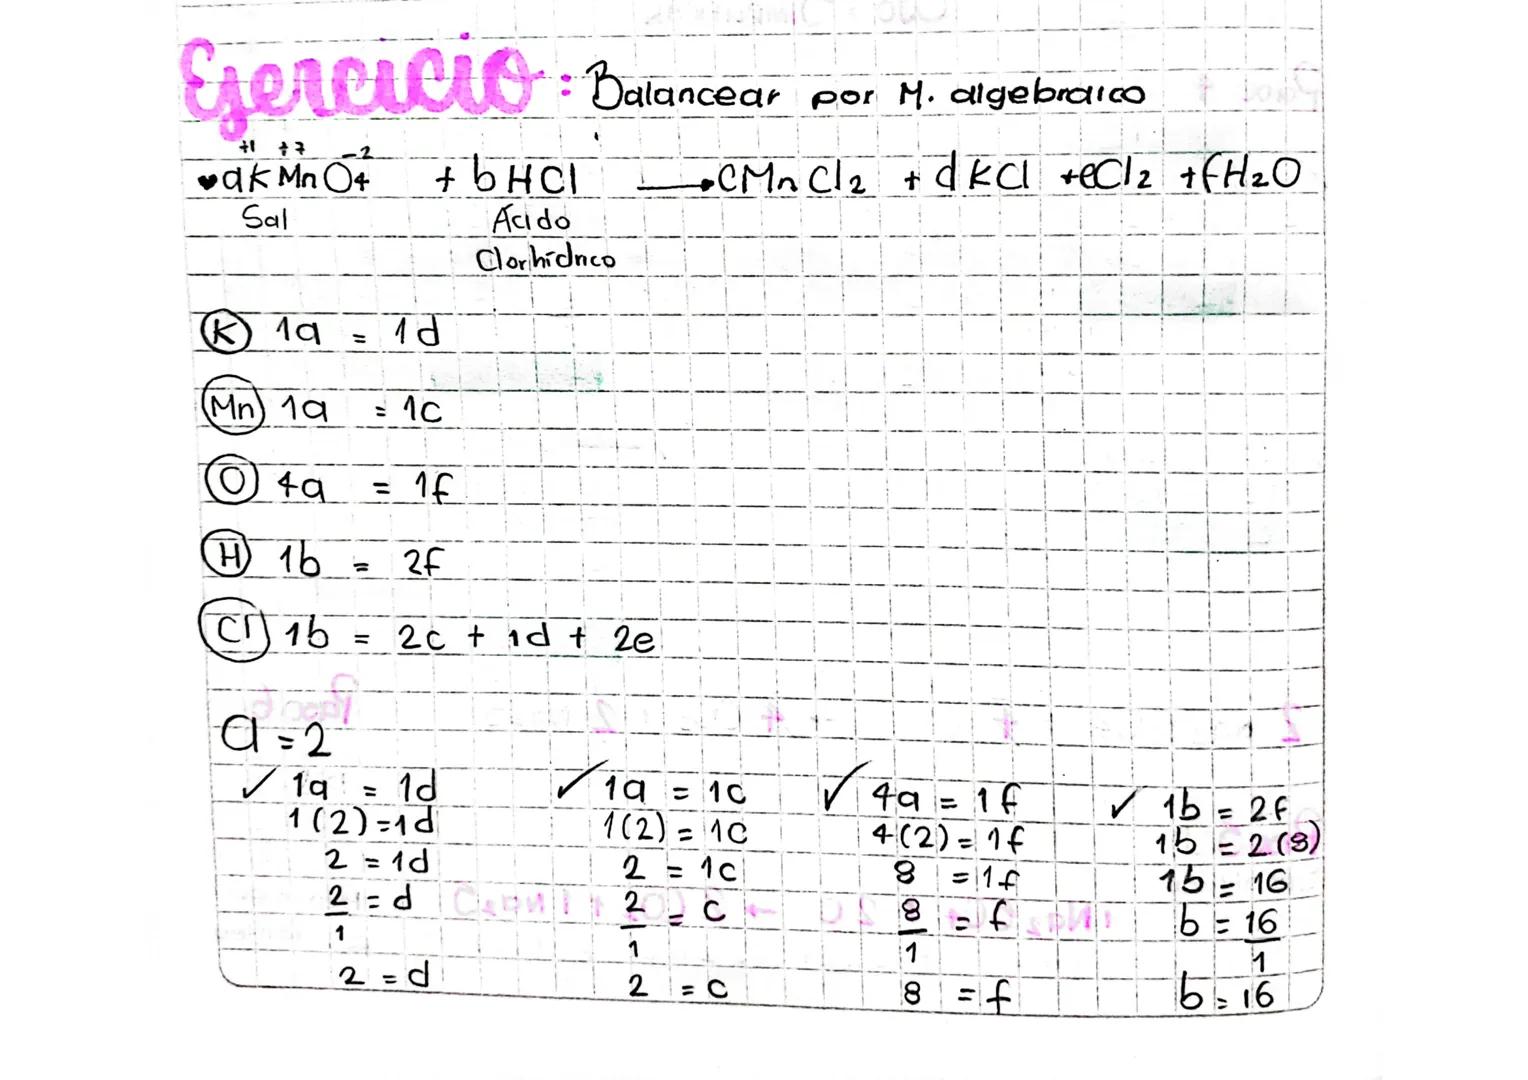 Ejercicio: Balancear por M. algebraico
+1 +7 -2
♥aKMnO4 + bHCl → CMnCl2 + dKCl + eCl2 + fH2O
Sal Ácido
Clorhídrico
K 1a = 1d
Mn 1a = 1c
O 4a = 1f
H 1b = 2f
Cl 1b = 2c + 1d + 2e
a = 2
✓ 1a = 1d ✓ 1a = 1c ✓ 4a = 1f ✓ 1b = 2f
1(2) = 1d 1(2) = 1c 4(2) = 1f 1b = 2(8)
2 = 1d 2 = 1c 8 = 1f 1b = 16
2/1 = d 2/1 = c 8/1 = f b = 16/1
2 = d 2 = c 8 = f b = 16